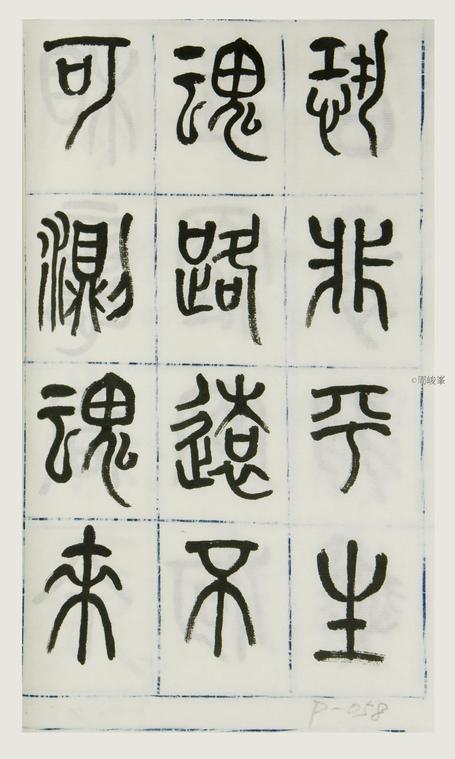 恐非平生
魂路遠不
可測魂來
P-058
©周峻峯